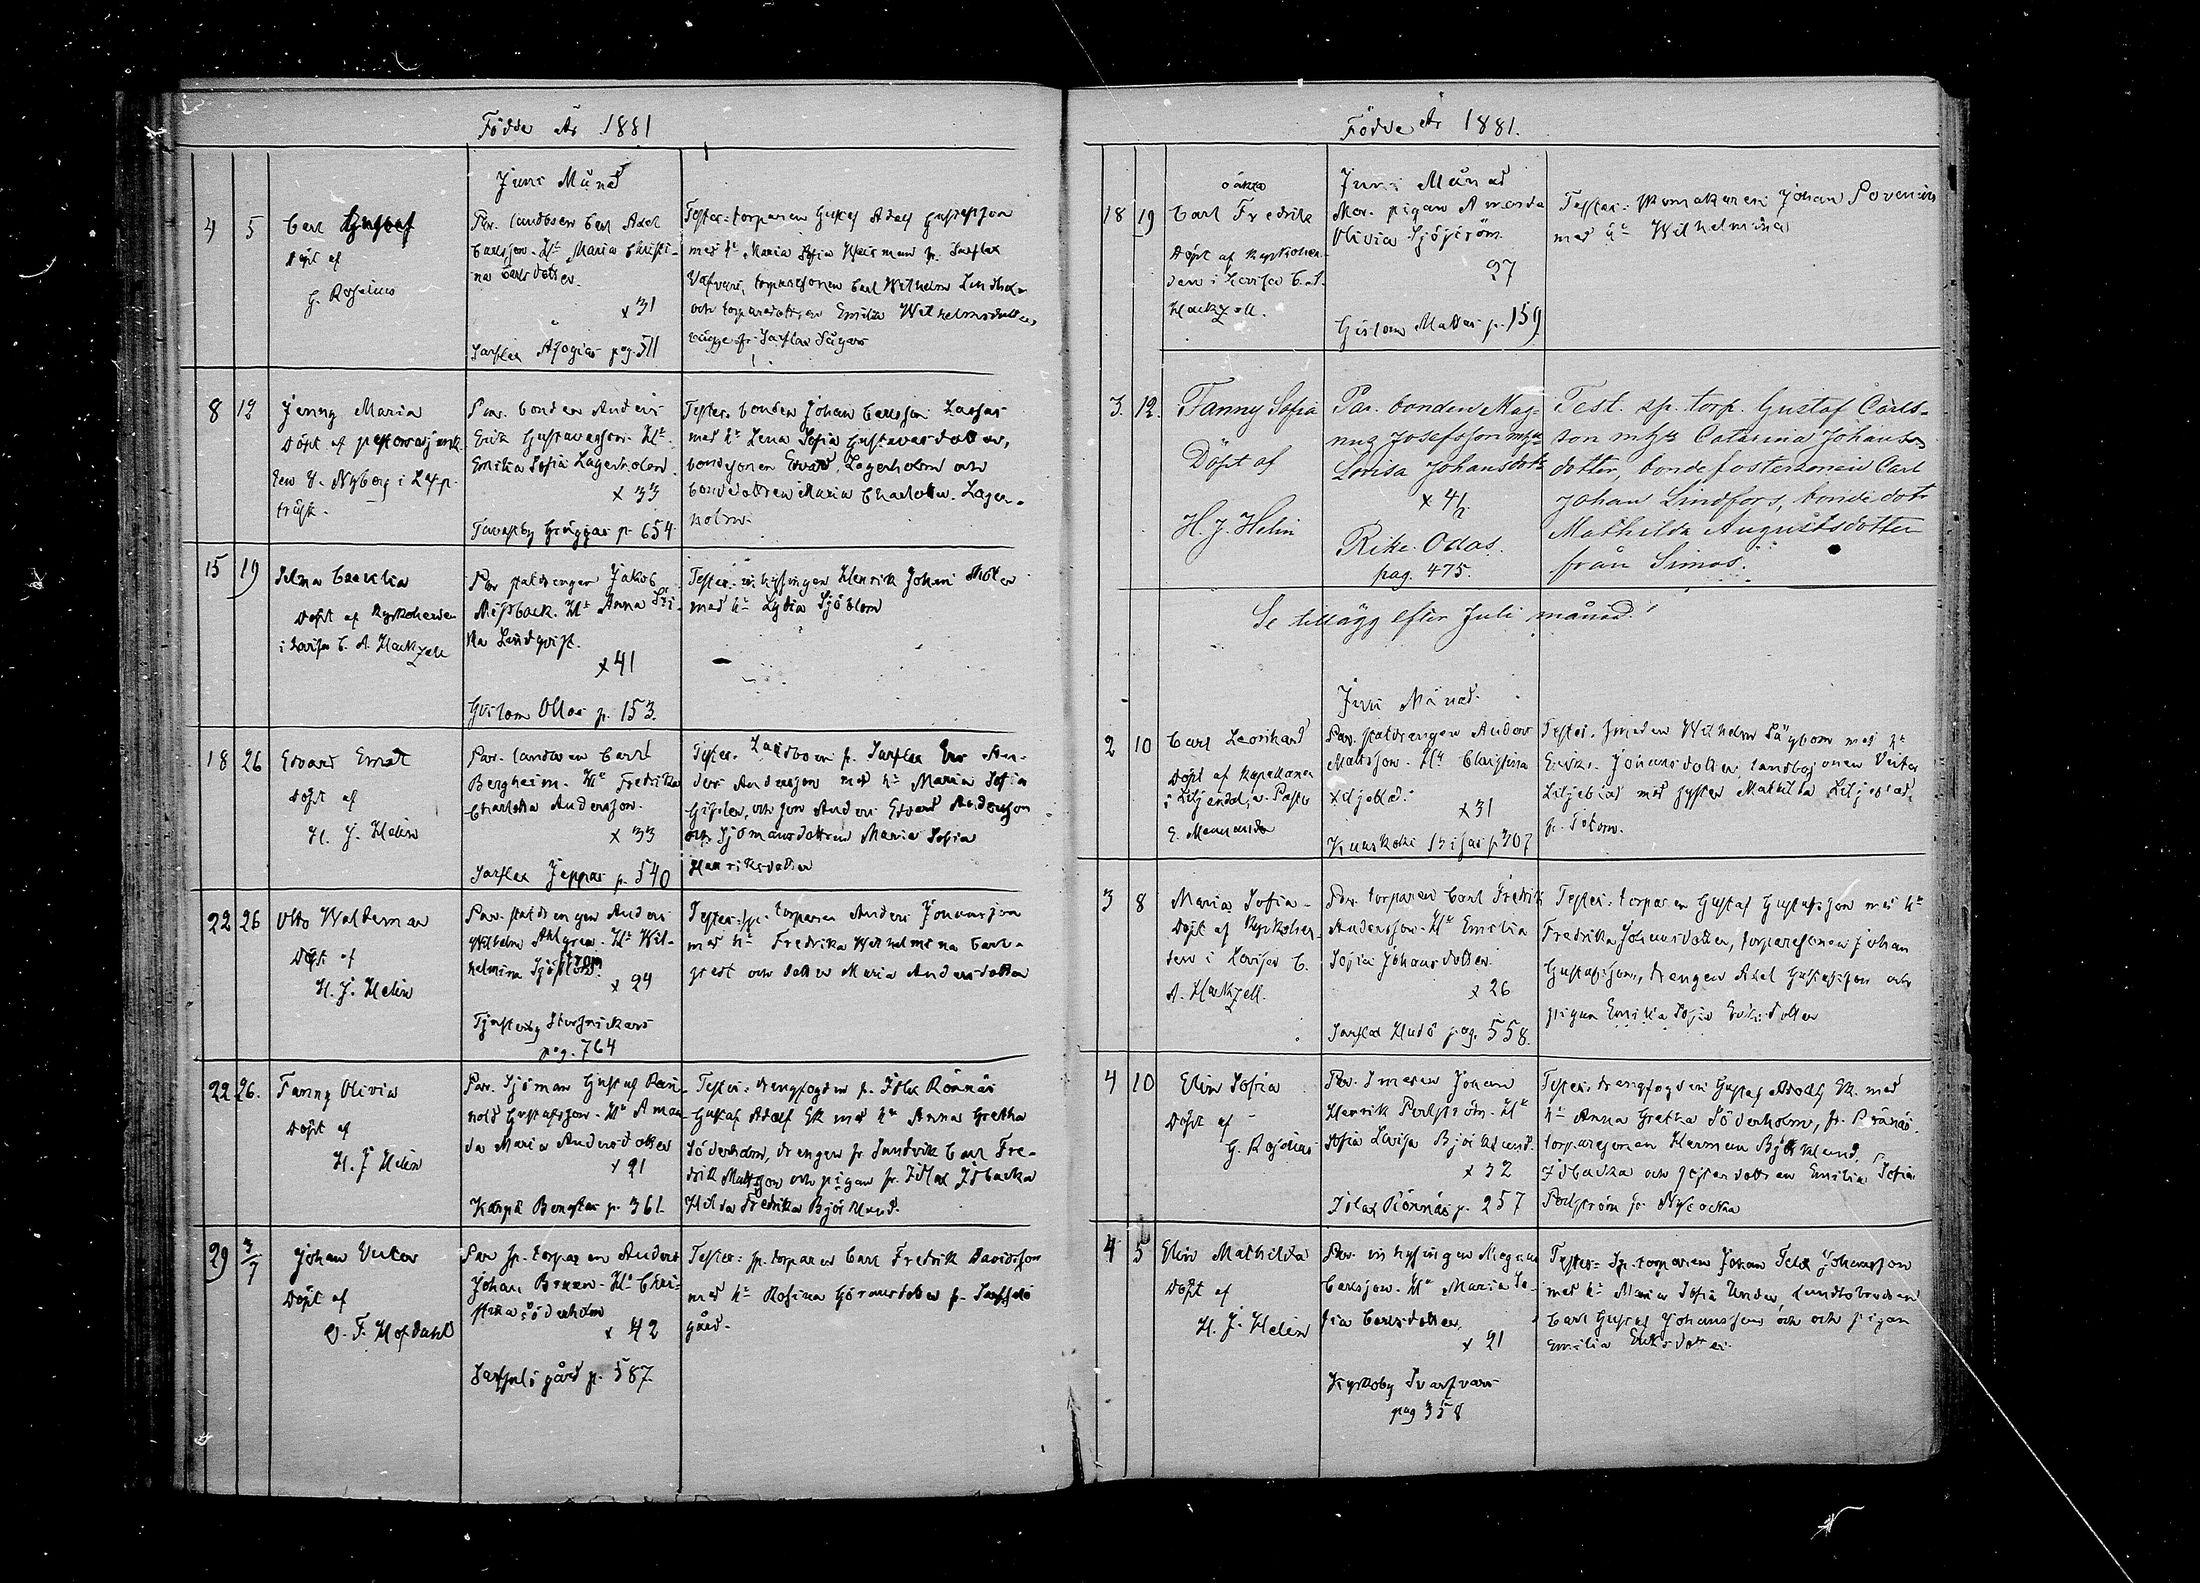 Födde År 1881
Juni Månad
4 5 Carl Gustaf
Döpt af
G. Roseius
Par. landboen Carl Axel
Carlsson. Hu Maria Christi-
na Carlsdotter.
x 31
Sarflax pag. 511
Tester: torparen Gustaf Adolf Gustafsson
med hu Maria Sofia fr. Sarflax
torparesonen Carl Wilhelm
och torparedottren Emilia Wilhelmsdotter,
bägge fr. Sarflax
8 12 Jenny Maria
Döpt af pastorsadjunkt
Nyberg i Lapp-
träsk.
Par. bonden Anders
Erik Gustavasson. Hu
Emilia Sofia Lagerholm.
x 33
Tavastby Gröggas p. 654
Tester. bonden Johan Carlsson Lassas
med hu Lena Sofia Gustavasdotter,
bondsonen Edvard Lagerholm och
bondedottren Maria Charlotta Lager-
holm.
15 19 Selma Cecilia
Döpt af Kyrkoherden
i Lovisa C. A. Hackzell
Par stalldrengen Jakob
Hu Anna Sti-
na Lindqvist.
x 41
Gislom Ollas p. 153.
Tester: inhysingen Henrik Johan
med hu Lydia Sjöblom
18 26 Edvard Ernst
Döpt af
H. J. Helin
Par. landboen Carl
Bergheim. Hu Fredrika
Charlotta Andersson.
x 33
Sarflax Jeppas p. 540
Tester. Landboen fr. Sarflax An-
ders Andersson med hu Maria Sofia
och son Anders Edvard Andersson
och Sjömansdottren Maria Sofia
Henriksdotter
22 26 Otto Waldemar
Döpt af
H. J. Helin
Par. stalldrengen Anders
Wilhelm Ahlgren. Hu Wil-
helmina Sjöström
x 24
Tjusterby
pag. 764
Tester: sp. torparen Anders Johansson
med hu Fredrika Wilhelmina Carl-
qvist och dotter Maria Andersdotter
22 26. Fanny Olivia
Döpt af
H. J. Helin
Par. Sjöman Gustaf Rein-
hold Gustafsson. Hu Aman-
da Maria Andersdotter
x 21
Kärpä Bengtas p. 361.
Tester: drengfogden fr. Isla Rönnäs
Gustaf Adolf Ek med hu Anna Gretha
Söderholm, drengen fr. Sundvik Carl Fre-
drik Mattsson och pigan fr. Islax Isbacka
Hilda Fredrika Björklund.
29 3/7 Johan Victor
Döpt af
O. F. Hofdahl
Par sp. torparen Anders
Johan Bruun. Hu Chri-
stina Söderholm
x 42
Sarfsalö gård p. 587
Tester: sp. torparen Carl Fredrik Davidsson
med hu Rosina Göransdotter fr. Sarfsalö
gård.
Födde År 1881.
Juni Månad
18 19 oäkta
Carl Fredrik
Döpt af Kyrkoher-
den i Lovisa C. A.
Hackzell.
Mor. pigan Amanda
Olivia Sjöström
27
Gislom Mattas p. 159
Tester: Skomakaren Johan Sovenius
med hu Wilhelmina
3. 12. Fanny Sofia
Döpt af
H. J. Helin
Par. bonden Mag-
nus Josefsson m. hu
Lovisa Johansdott.
x 41.
Rike. Odas.
pag. 475.
Test. sp. torp. Gustaf Carls-
son m. hu Catarina Johans-
dotter, bondefostersonen Carl
Johan Lindfors, bonde dotr
Mathilda Augustsdotter
från Simos.
Se tillägg efter Juli månad!
Juni Månad.
2 10 Carl Leonhard
Döpt af Kapellanen
i Liljendal, v. Pastor
E.
Par. stalldrengen Anders
Mattsson. Hu Christina
Liljeblad.
x 31
p 207
Tester. smeden Wilhelm med hu
Johansdotter, landbosonen Victor
Liljeblad med syster Mathilda Liljeblad,
3 8 Maria Sofia
Döpt af Kyrkoher-
den i Lovisa C.
A. Hackzell.
Par. torparen Carl Fredrik
Andersson. Hu Emilia
Sofia Johansdotter.
x 26
Sarflax Hudö pag. 558.
Tester: torparen Gustaf Gustafsson med hu
Fredrika Johansdotter, torparesonen Johan
Gustafsson, drengen Axel Gustafsson och
pigan Emilia Sofia Eriksdotter
4 10 Elin Sofia
Döpt af
G. Roseius
Par. Smeden Johan
Henrik Hu
Sofia Lovisa Björklund.
x 32
Islax Rönnäs p. 257
Tester: drengfogden Gustaf Adolf Ek. med
hu Anna Gretha Söderholm, fr. Rönnäs.
torparesonen Herman Björklund,
Isbacka och systerdottren Emilia Sofia
fr. Nybacka
4 5 Elin Mathilda
Döpt af
H. J. Helin
Par. inhysingen Magnus
Carlsson. Hu Maria So-
fia Carlsdotter.
x 21
Kyrkoby Svarfvars
pag 358
Tester: Sp. torparen Johan Felix Johansson
med hu Maria Sofia
Carl Gustaf Johansson och och pigan
Emilia Eriksdotter.